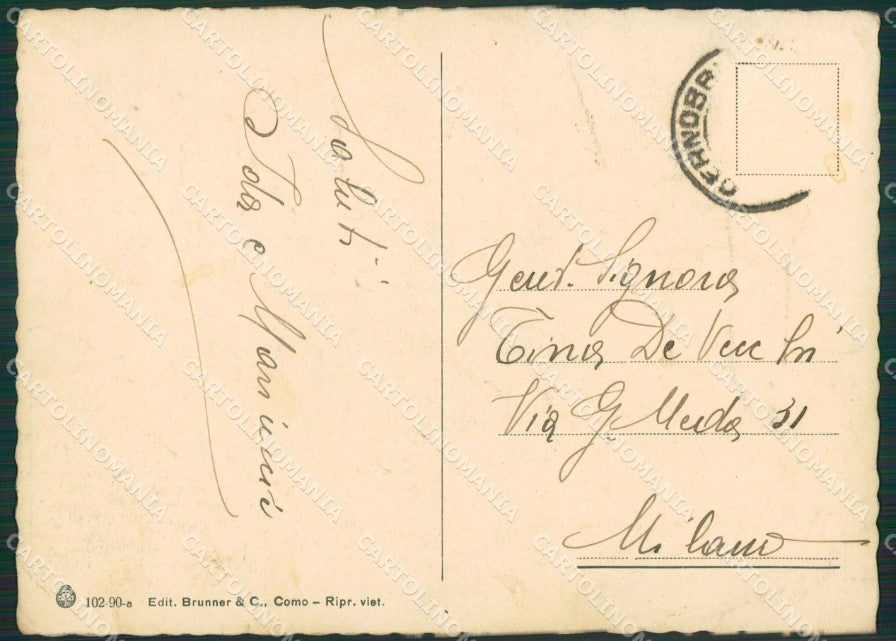 Saluti
Ida e Mariuccia
CERNOBB
Gent. Signora
Tina De Vecchi
Via G. Meda 31
Milano
102-90-a Edit. Brunner & C., Como – Ripr. viet.
CARTOLINOMANIA